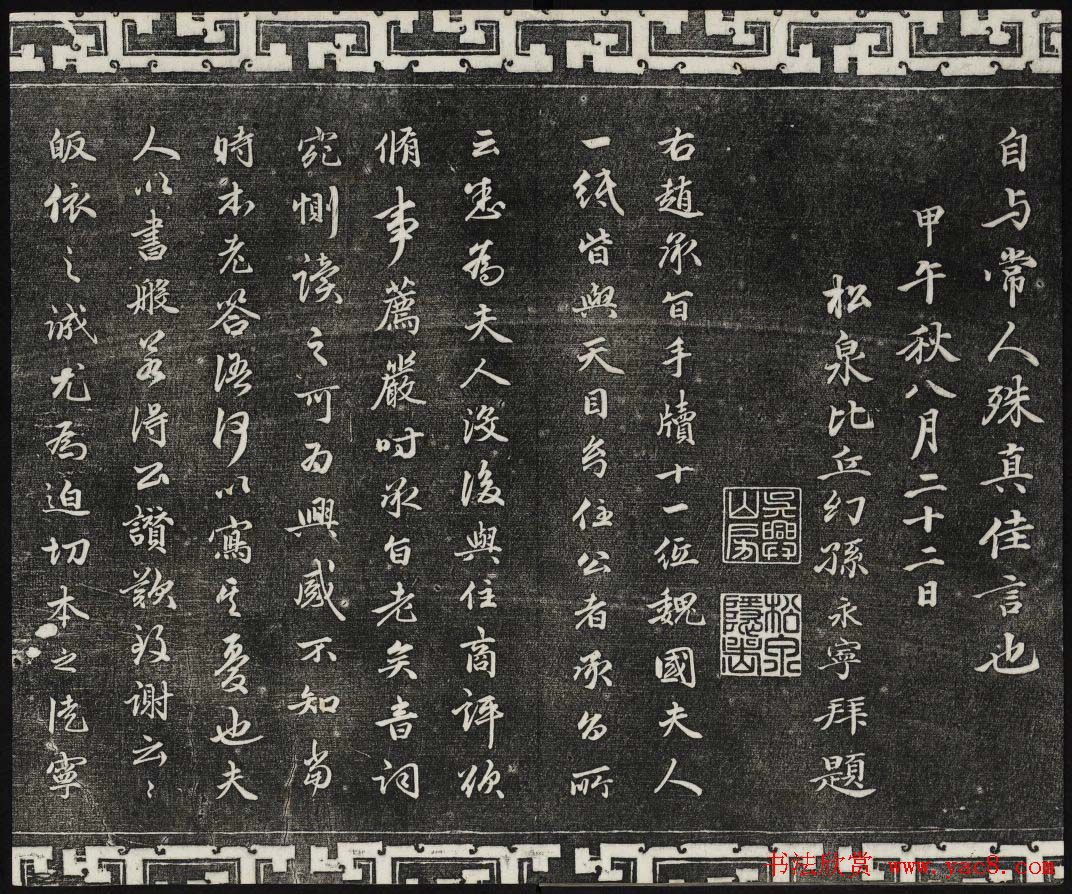 自与常人殊真佳言也
甲午秋八月二十二日
松泉比丘幻孫永寧拜題
吳興山房
松泉
右趙承旨手牘十一紙魏國夫人
一紙皆與天目幻住公者承旨所
云悉為夫人沒後與住商評欲
脩事薦嚴時承旨老矣音詞
悽惻讀之可為興感不知當
時本老答語何以寫其憂也夫
人以書般若得公讚歎致謝云〻
皈依之誠尤為迫切本之徒寧
书法欣赏 www.yac8.com